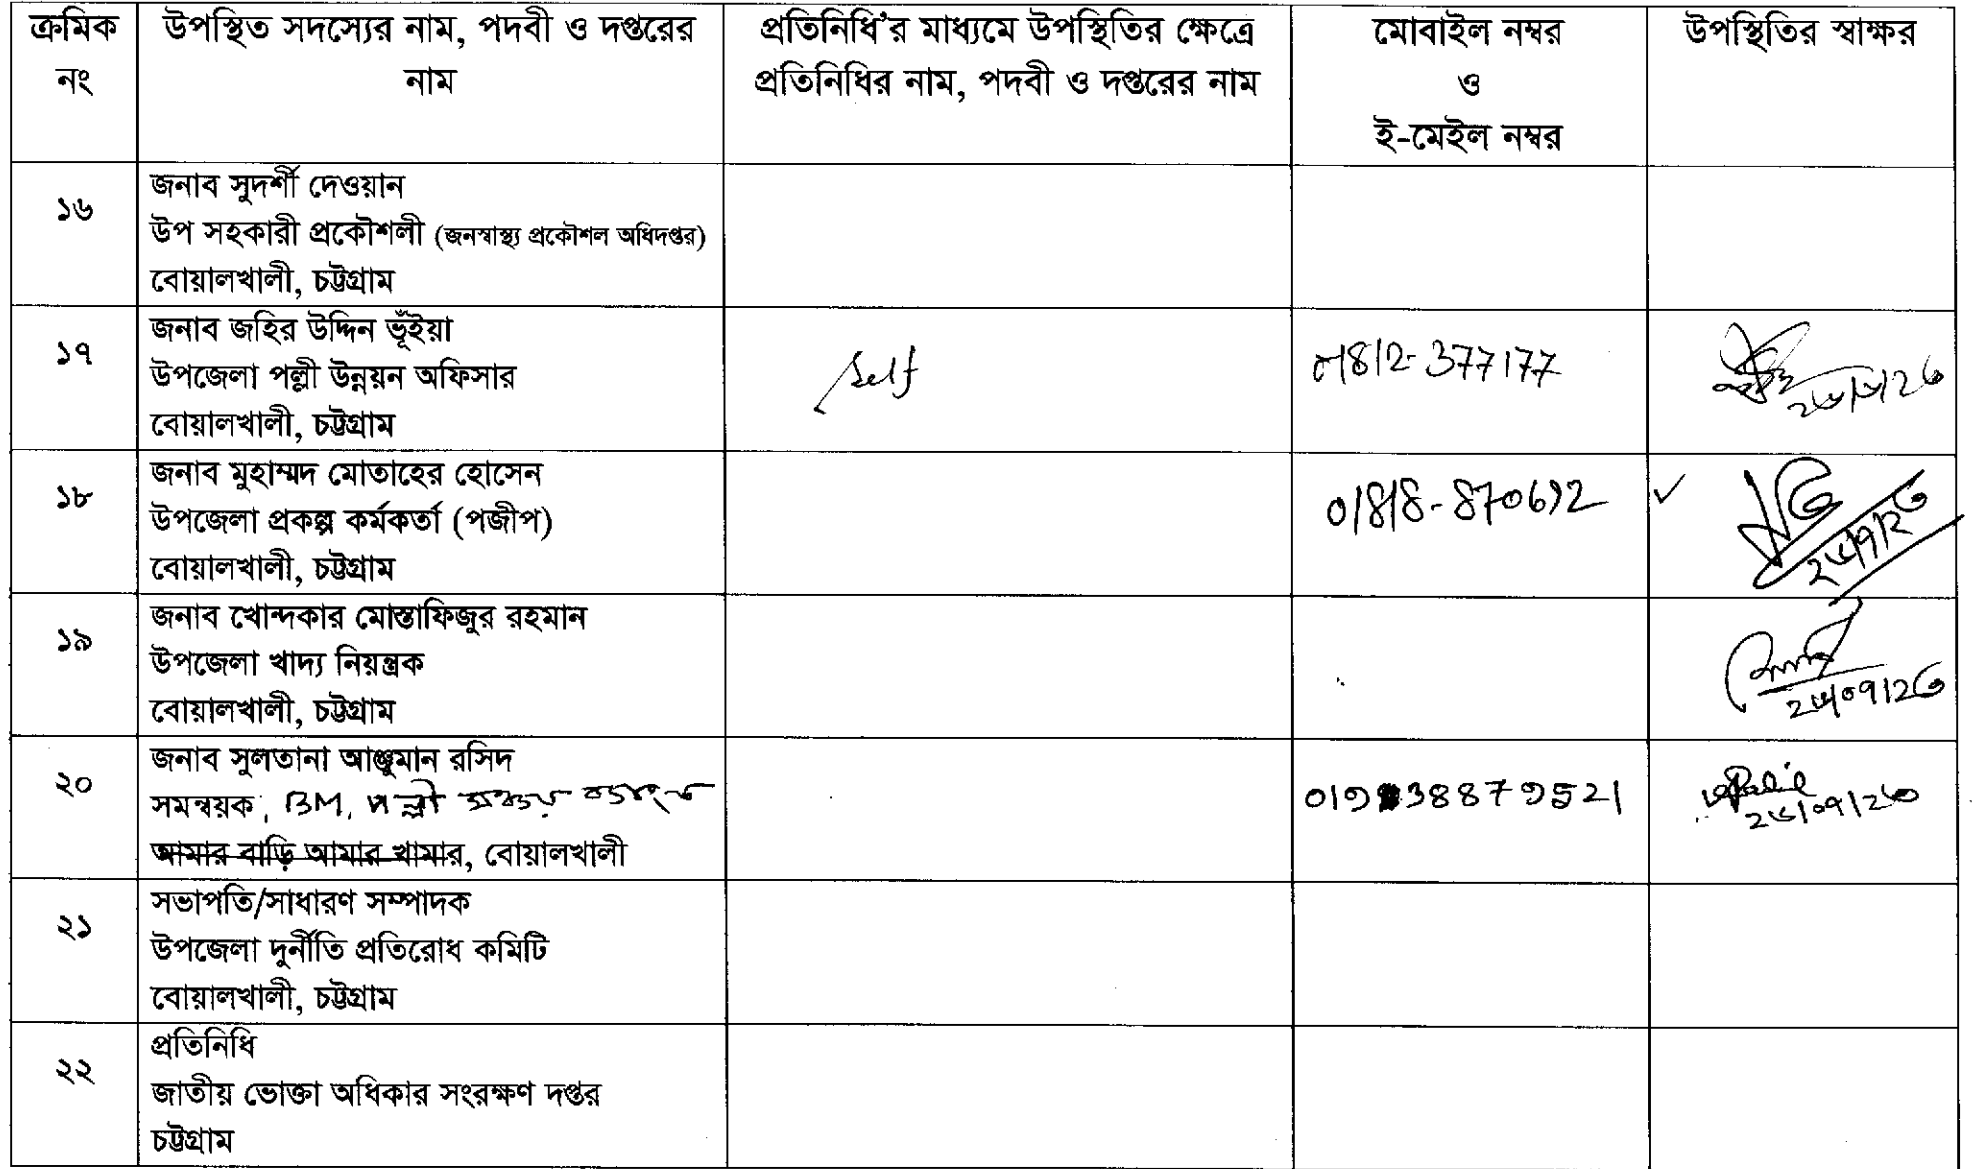 ক্রমিক নং
উপস্থিত সদস্যের নাম, পদবী ও দপ্তরের নাম
প্রতিনিধি'র মাধ্যমে উপস্থিতির ক্ষেত্রে
প্রতিনিধির নাম, পদবী ও দপ্তরের নাম
মোবাইল নম্বর
ও
ই-মেইল নম্বর
উপস্থিতির স্বাক্ষর
১৬
জনাব সুদর্শী দেওয়ান
উপ সহকারী প্রকৌশলী (জনস্বাস্থ্য প্রকৌশল অধিদপ্তর)
বোয়ালখালী, চট্টগ্রাম
১৭
জনাব জহির উদ্দিন ভূঁইয়া
উপজেলা পল্লী উন্নয়ন অফিসার
বোয়ালখালী, চট্টগ্রাম
self
01812-377177
১৮
জনাব মুহাম্মদ মোতাহের হোসেন
উপজেলা প্রকল্প কর্মকর্তা (পজীপ)
বোয়ালখালী, চট্টগ্রাম
01818-870612
১৯
জনাব খোন্দকার মোস্তাফিজুর রহমান
উপজেলা খাদ্য নিয়ন্ত্রক
বোয়ালখালী, চট্টগ্রাম
২০
জনাব সুলতানা আঞ্জুমান রসিদ
সমন্বয়ক, BM, পল্লী সঞ্চয় ব্যাংক
আমার বাড়ি আমার খামার, বোয়ালখালী
২১
সভাপতি/সাধারণ সম্পাদক
উপজেলা দুর্নীতি প্রতিরোধ কমিটি
বোয়ালখালী, চট্টগ্রাম
২২
প্রতিনিধি
জাতীয় ভোক্তা অধিকার সংরক্ষণ দপ্তর
চট্টগ্রাম